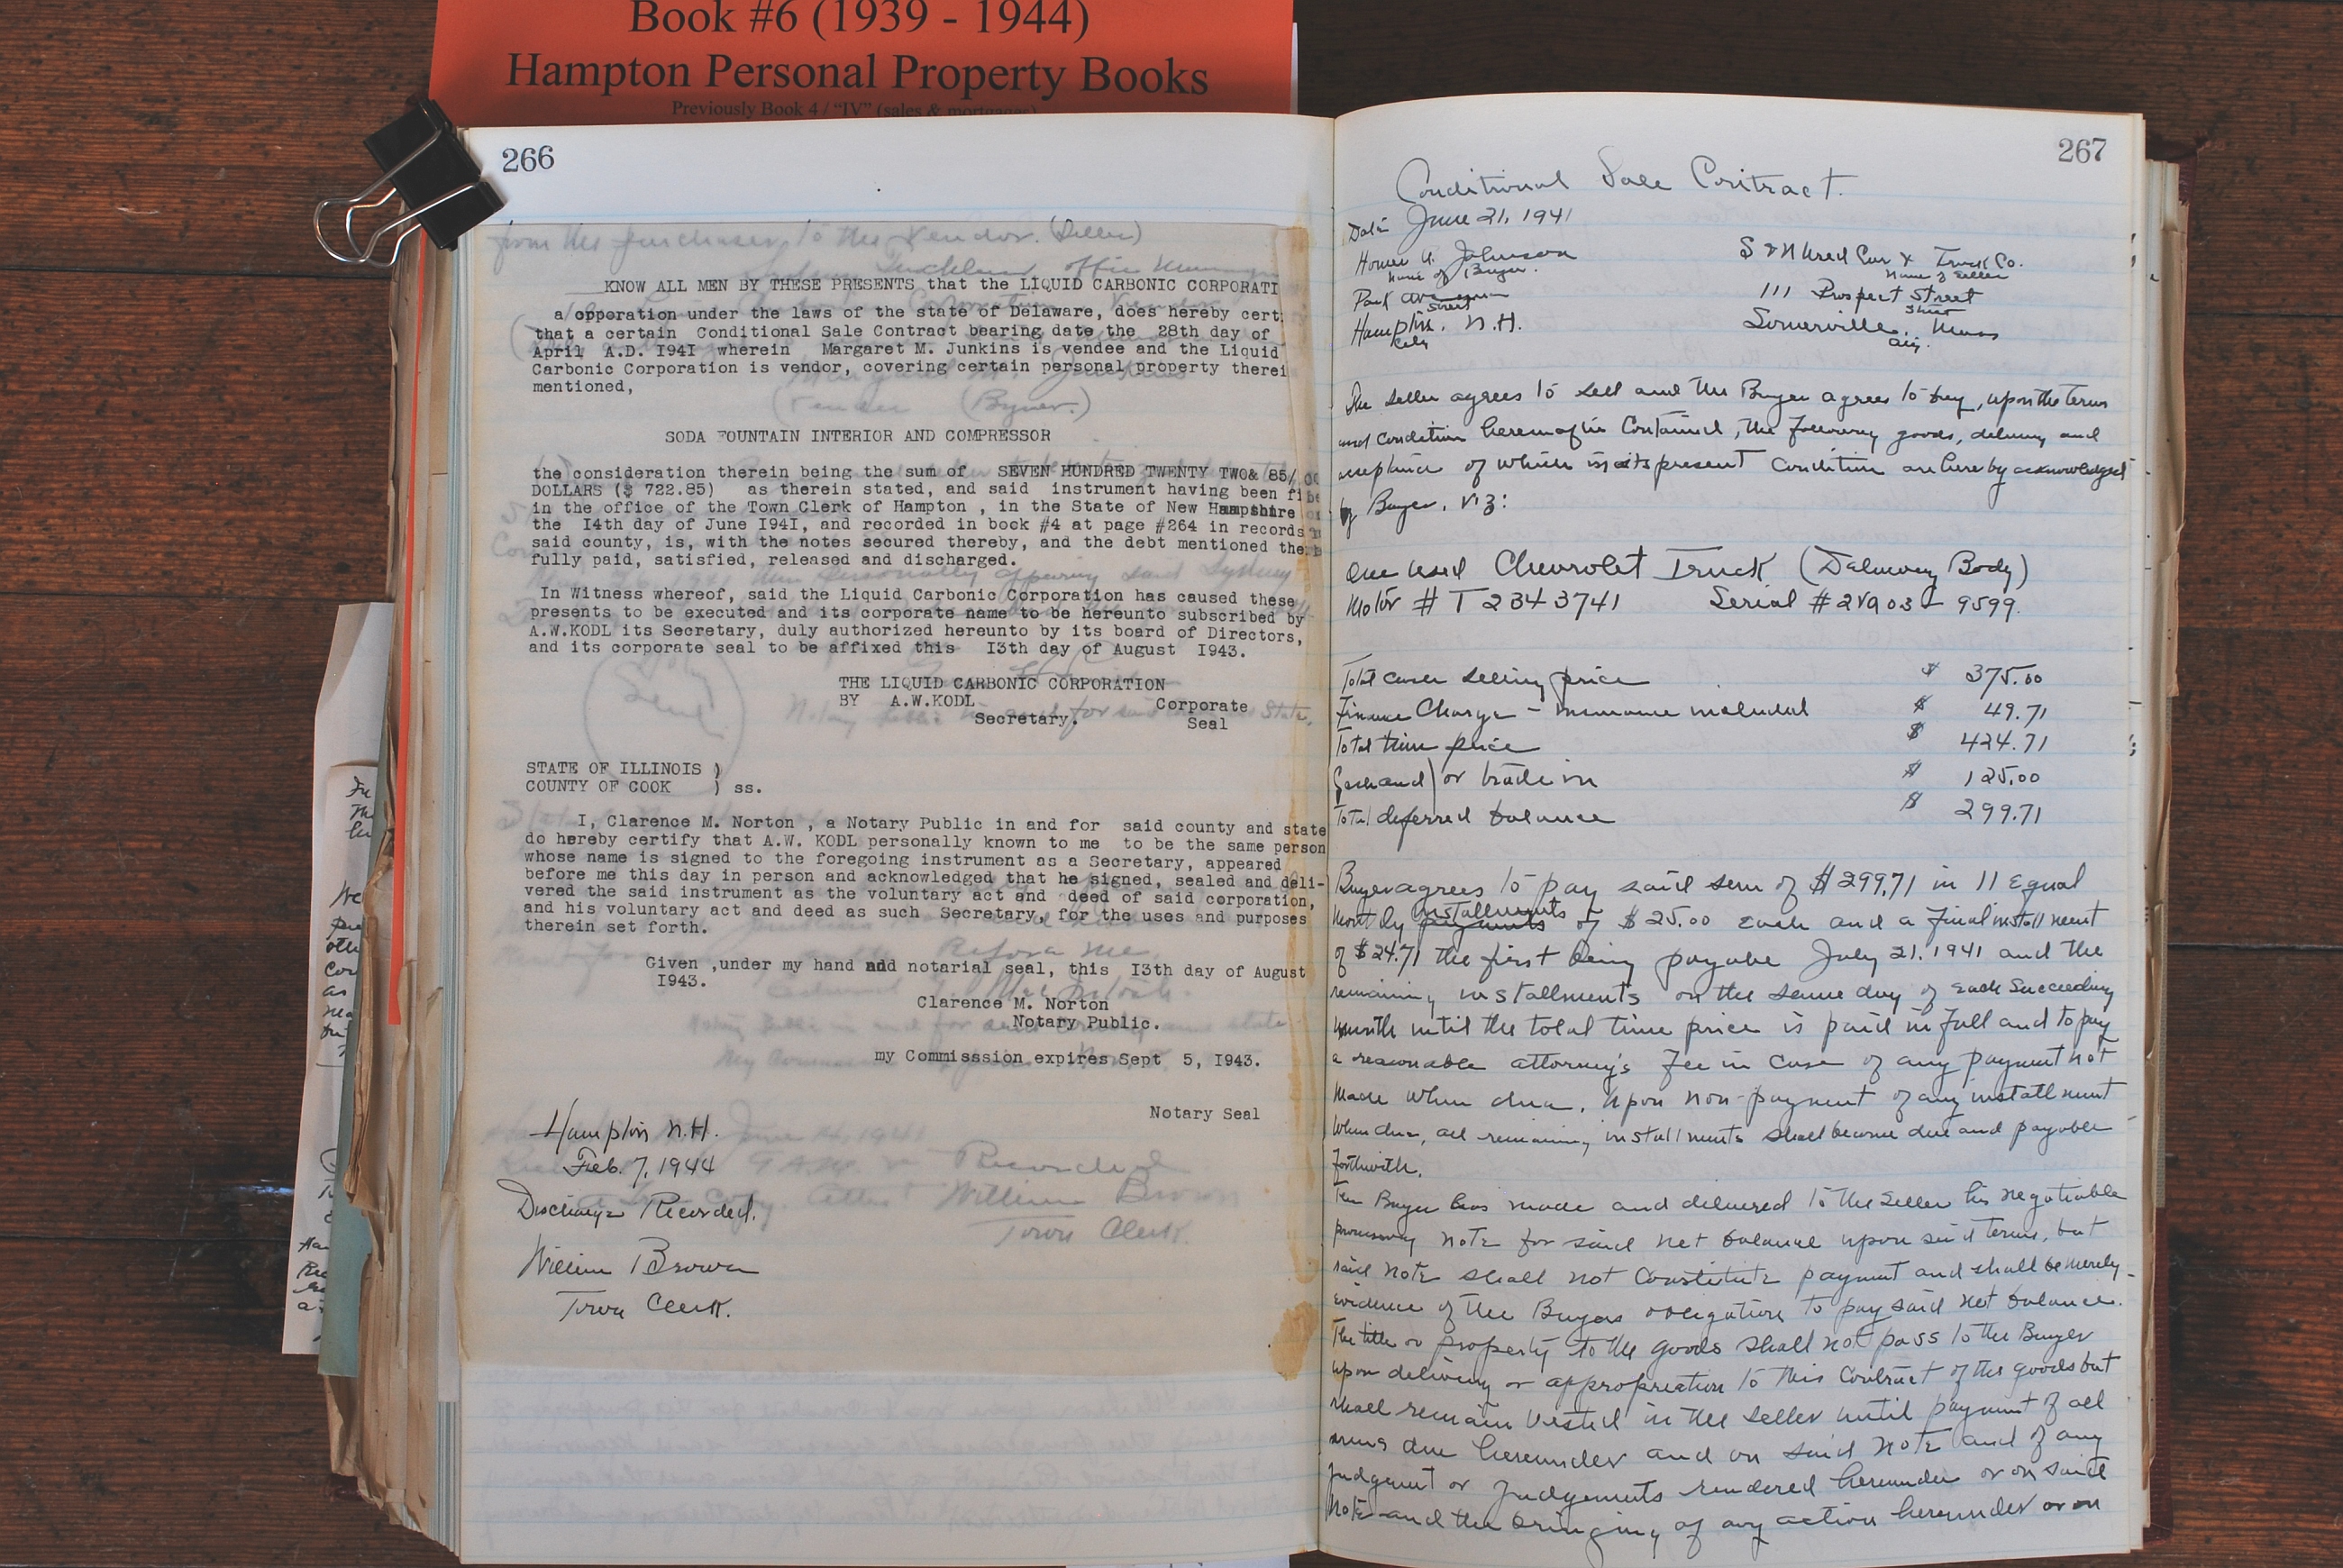 Book #6 (1939 - 1944)
Hampton Personal Property Books
Previously Book 4 / "IV" (sales & mortgages)
266
from the purchaser to the Vendor. (Seller)
KNOW ALL MEN BY THESE PRESENTS that the LIQUID CARBONIC CORPORATI
a corporation under the laws of the state of Delaware, does hereby cert
that a certain Conditional Sale Contract bearing date the 28th day of
April A.D. I94I wherein Margaret M. Junkins is vendee and the Liquid
Carbonic Corporation is vendor, covering certain personal property therei
mentioned,
(Vendee (Buyer.)
SODA FOUNTAIN INTERIOR AND COMPRESSOR
the consideration therein being the sum of SEVEN HUNDRED TWENTY TWO& 85/
DOLLARS ($ 722.85) as therein stated, and said instrument having been fi
in the office of the Town Clerk of Hampton , in the State of New Hampshire
the I4th day of June I94I, and recorded in bock #4 at page #264 in records
said county, is, with the notes secured thereby, and the debt mentioned the
fully paid, satisfied, released and discharged.
In Witness whereof, said the Liquid Carbonic Corporation has caused these
presents to be executed and its corporate name to be hereunto subscribed by
A.W.KODL its Secretary, duly authorized hereunto by its board of Directors,
and its corporate seal to be affixed this I3th day of August I943.
THE LIQUID CARBONIC CORPORATION
BY A.W.KODL Corporate
Secretary. Seal
STATE OF ILLINOIS )
COUNTY OF COOK ) ss.
I, Clarence M. Norton , a Notary Public in and for said county and state
do hereby certify that A.W. KODL personally known to me to be the same person
whose name is signed to the foregoing instrument as a Secretary, appeared
before me this day in person and acknowledged that he signed, sealed and deli-
vered the said instrument as the voluntary act and deed of said corporation,
and his voluntary act and deed as such Secretary, for the uses and purposes
therein set forth.
Before me,
Given ,under my hand and notarial seal, this I3th day of August
I943.
Clarence M. Norton
Notary Public.
my Commisssion expires Sept 5, I943.
Notary Seal
Hampton N.H.
Feb. 7, 1944
Discharge Recorded.
William Brown
Town Clerk.
June 14, 1941
9 A.M. Recorded
Copy. Attest William Brown
Town Clerk.
267
Conditional Sale Contract.
Date June 21, 1941
Homer A. Johnson S & N Used Car & Truck Co.
name of Buyer. name of Seller
Park Ave 111 Prospect Street
Street Street
Hampton, N.H. Somerville, Mass
City City.
The seller agrees to sell and the Buyer agrees to buy, upon the terms
and condition hereinafter contained, the following goods, delivery and
acceptance of which in its present condition are hereby acknowledged
by Buyer, viz:
One used Chevrolet Truck (Delivery Body)
Motor # T2343741 Serial # 2VA03 - 9599.
Total cash selling price $ 375.00
Finance Charge - insurance included $ 49.71
Total time price $ 424.71
(Cash and) or trade in $ 125.00
Total deferred balance $ 299.71
Buyer agrees to pay said sum of $299.71 in 11 equal
monthly installments of $25.00 each and a final installment
of $24.71 the first being payabe July 21, 1941 and the
remaining installments on the same day of each succeeding
month until the total time price is paid in full and to pay
a reasonable attorney's fee in case of any payment not
made when due. Upon non-payment of any installment
when due, all remaining installments shall become due and payable
forthwith.
The Buyer has made and delivered to the Seller his negotiable
promissory note for said net balance upon said terms, but
said note shall not constitute payment and shall be merely
evidence of the Buyers obligation to pay said net balance.
The title or property to the goods shall not pass to the Buyer
upon delivery or appropriation to this contract of the goods but
shall remain vested in the seller until payment of all
sums due hereunder and on said note and of any
judgment or judgements rendered hereunder or on said
note and the bringing of any action hereunder or on